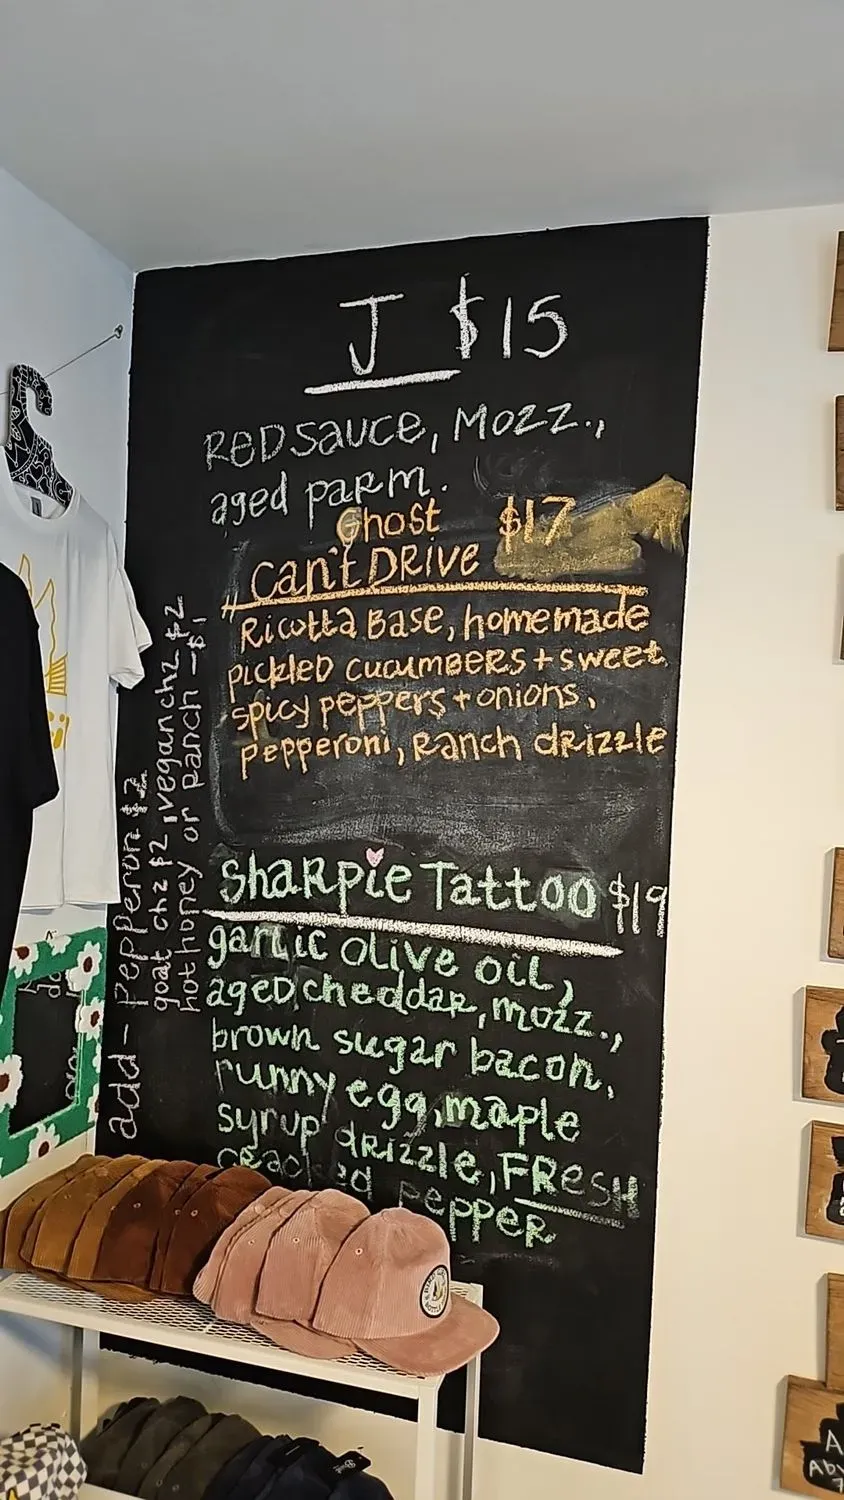 J $15
REDSAUCE, MOZZ.,
aged PARM.
Ghost $17
Can't DRIVE
Ricotta Base, homemade
PICKLED CUCUMBERS + sweet
spicy peppers + onions,
pepperoni, Ranch drizzle
SHARPIE TATTOO $19
garlic olive oil,
aged cheddar, mozz.,
brown sugar bacon,
runny egg, maple
syrup drizzle, FRESH
cracked pepper
add - Pepperoni $2
goat chz $2, vegan chz $2
hot honey or Ranch - $1